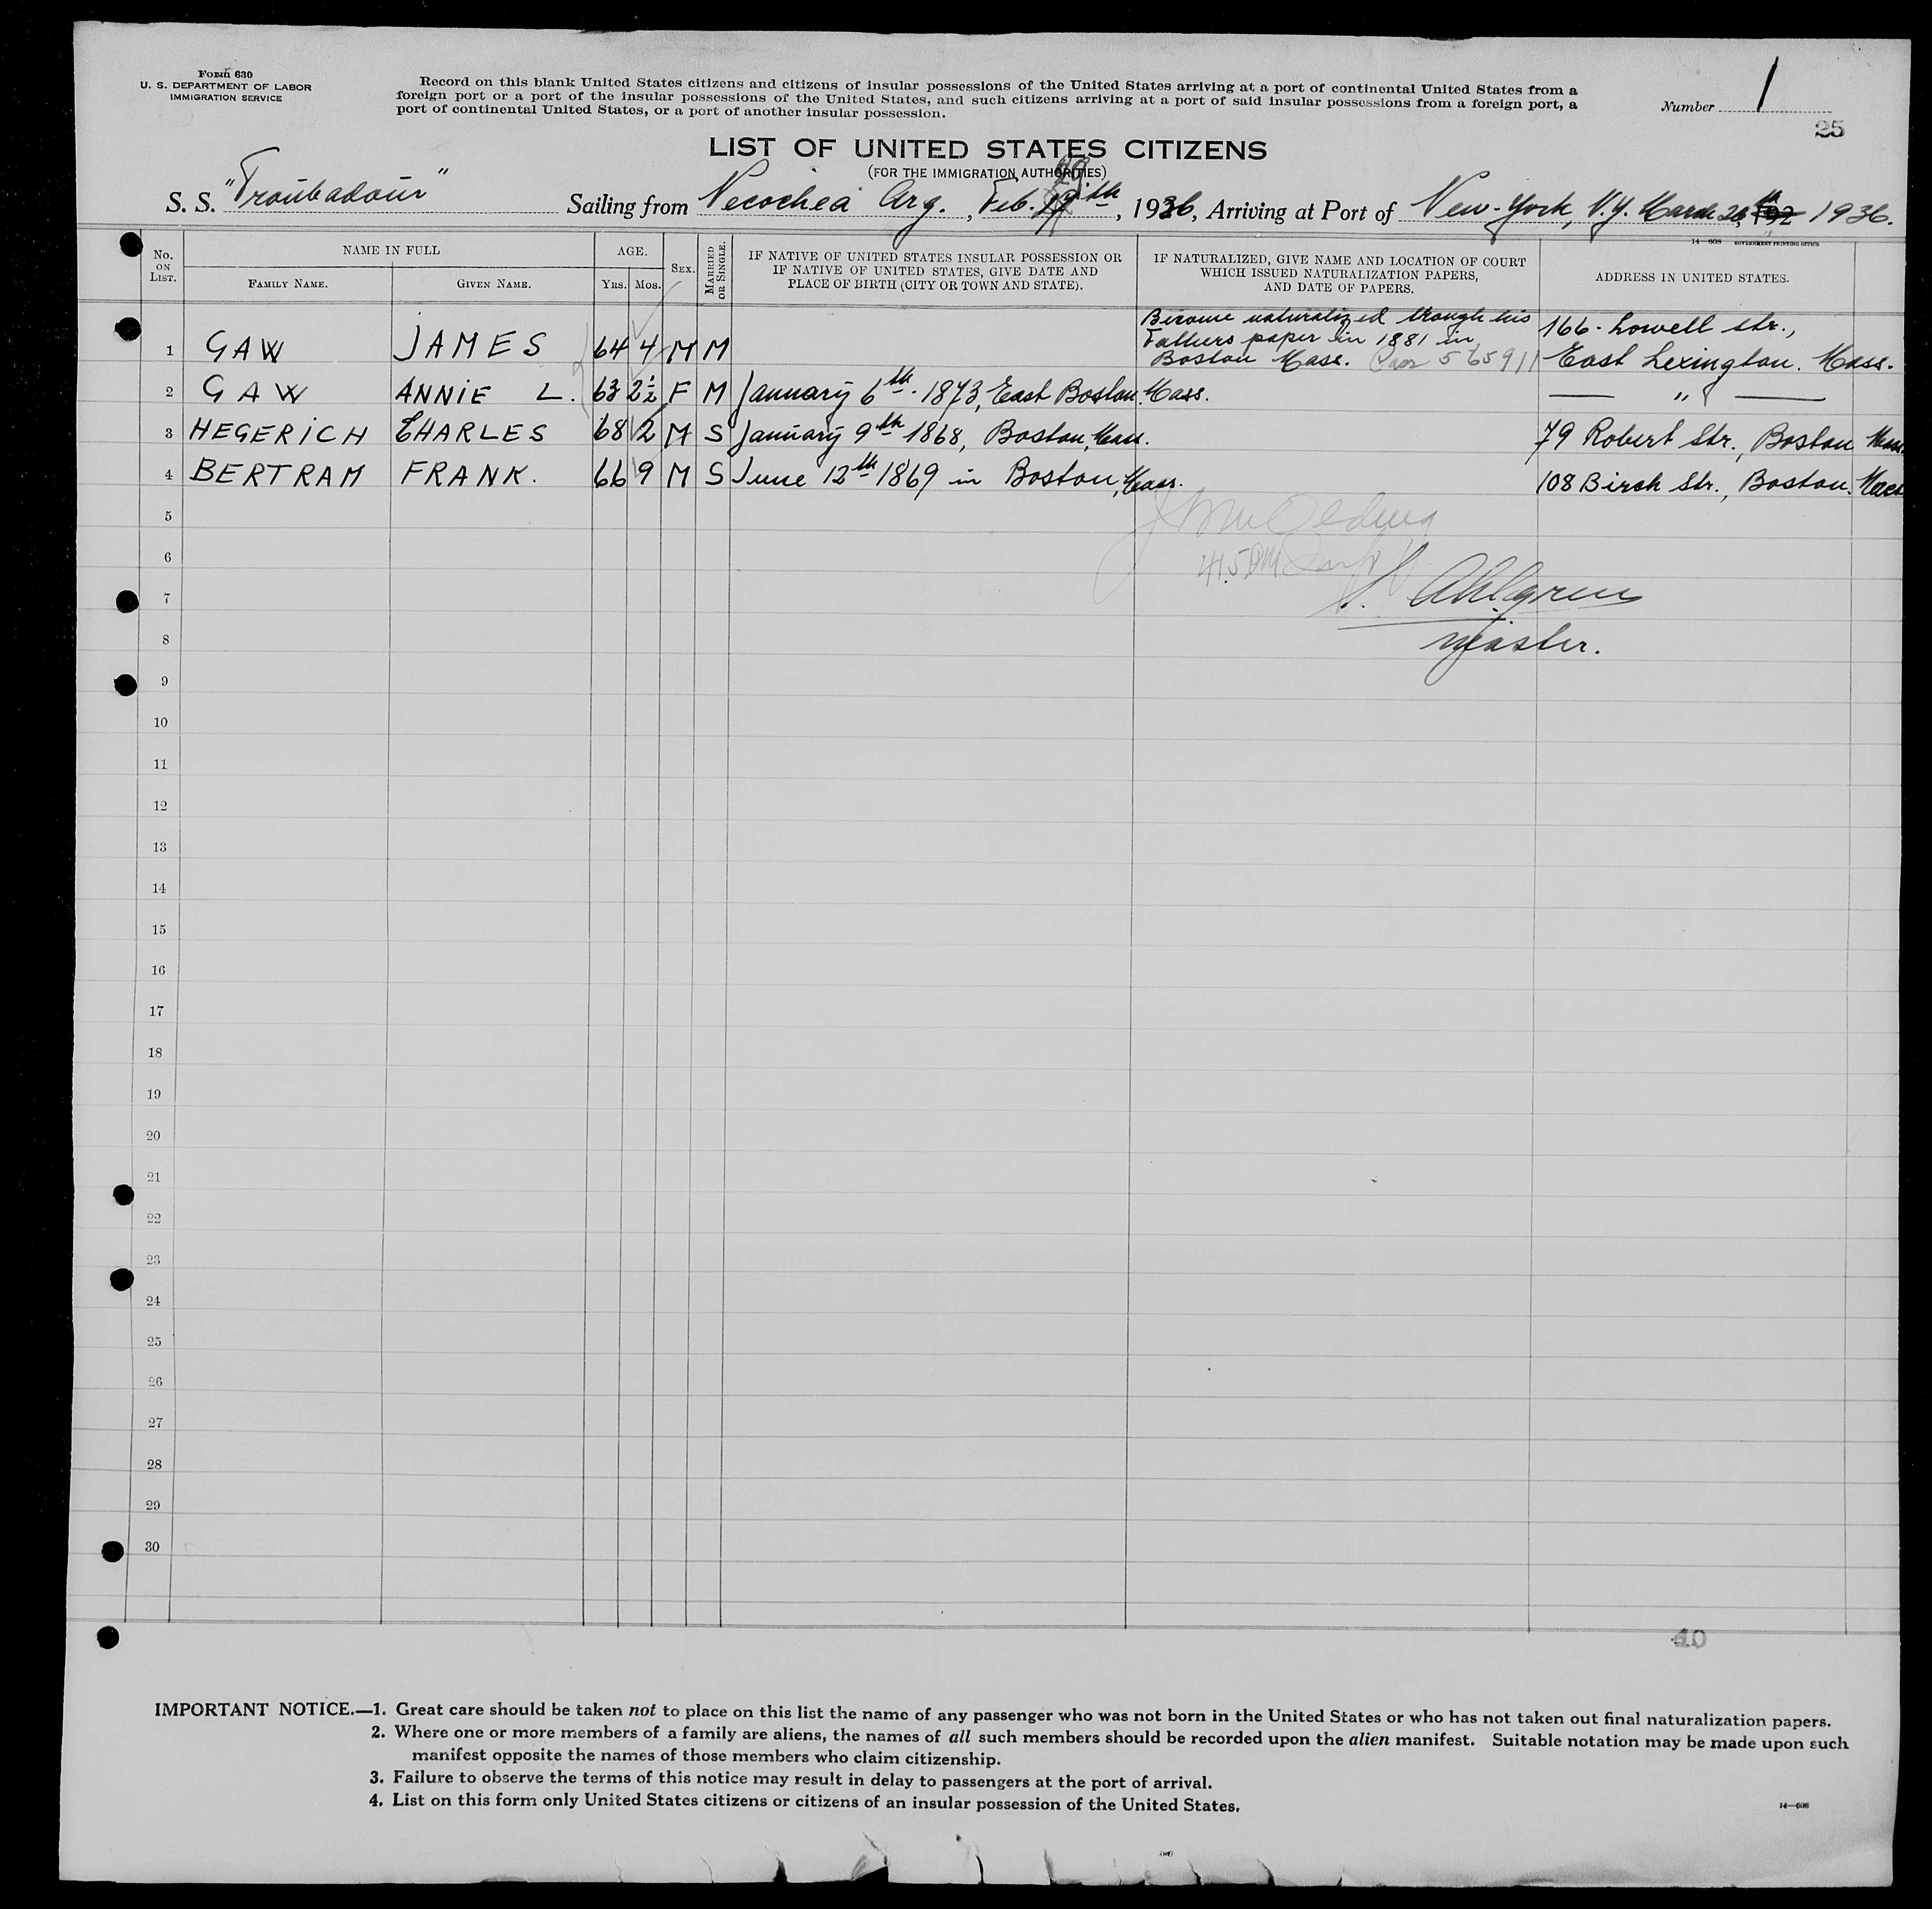 Form 630
U. S. DEPARTMENT OF LABOR
IMMIGRATION SERVICE
Record on this blank United States citizens and citizens of insular possessions of the United States arriving at a port of continental United States from a
foreign port or a port of the insular possessions of the United States, and such citizens arriving at a port of said insular possessions from a foreign port, a
port of continental United States, or a port of another insular possession.
Number 1
25
LIST OF UNITED STATES CITIZENS
(FOR THE IMMIGRATION AUTHORITIES)
S. S. "Troubadour" Sailing from Necochea Arg., Feb. 29th, 1936, Arriving at Port of New-York, N.Y. March 26th, 192 1936.
14—608 GOVERNMENT PRINTING OFFICE
No. ON LIST.
NAME IN FULL
FAMILY NAME.
GIVEN NAME.
AGE.
YRS. MOS.
SEX.
MARRIED OR SINGLE.
IF NATIVE OF UNITED STATES INSULAR POSSESSION OR
IF NATIVE OF UNITED STATES, GIVE DATE AND
PLACE OF BIRTH (CITY OR TOWN AND STATE).
IF NATURALIZED, GIVE NAME AND LOCATION OF COURT
WHICH ISSUED NATURALIZATION PAPERS,
AND DATE OF PAPERS.
ADDRESS IN UNITED STATES.
1 GAW JAMES 64 4 M M
Become naturalized trough his
Fathers paper in 1881 in
Boston Mass. 565911
166. Lowell str.,
East Lexington. Mass.
2 GAW ANNIE L. 63 2½ F M January 6th. 1873, East Boston, Mass. — " —
3 HEGERICH CHARLES 68 2 M S January 9th 1868, Boston, Mass. 79 Robert Str., Boston Mass.
4 BERTRAM FRANK. 66 9 M S June 12th 1869 in Boston, Mass. 108 Birch Str., Boston. Mass
5
6
7
8
9
10
11
12
13
14
15
16
17
18
19
20
21
22
23
24
25
26
27
28
29
30
Ahlgren
Master.
40
IMPORTANT NOTICE.—1. Great care should be taken not to place on this list the name of any passenger who was not born in the United States or who has not taken out final naturalization papers.
2. Where one or more members of a family are aliens, the names of all such members should be recorded upon the alien manifest. Suitable notation may be made upon such
manifest opposite the names of those members who claim citizenship.
3. Failure to observe the terms of this notice may result in delay to passengers at the port of arrival.
4. List on this form only United States citizens or citizens of an insular possession of the United States.
14—608